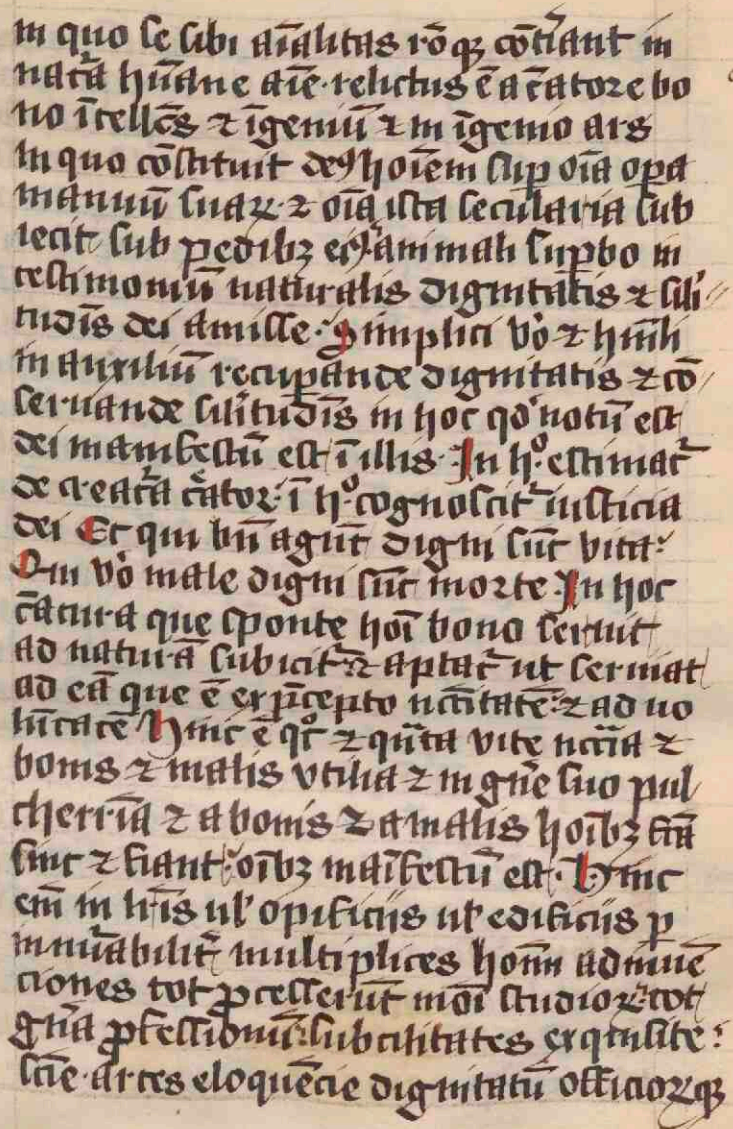 in quo se sibi aīalitas rō qꝫ cōtīant in
natā hūane aīe · relictus ē a c̄atore bo
no ītell̄cs ⁊ īgeniū ⁊ in īgenio ars
In quo cōstituit deꝰ hoīem suꝑ oīa oꝑa
manuū suaꝝ · ⁊ oīa ista secularia sub
iecit sub pedibꝫ eiꝰ animali suꝑbo in
testimoniū naturalis dignitatis ⁊ sili᷎
tudīs dei amisse · Simplici v̊o ⁊ hūili
in auxiliū recuꝑande dignitatis ⁊ cō
seruande silitudīs in hoc qd̓ notū est
dei manifestū est ī illis · In h° · estimat᷑
de creat̄a c̄ator · ī h° · cognoscit᷑ iusticia
dei Et qui bn̄ agūt digni sūt vita ·
Qui v̊o male digni sūt morte · In hoc
c̄atura que sponte hoī bono seruit
ad naturā subicit᷑ ⁊ aptat᷑ ut seruiat
ad eā que ē ex p̄cepto nc̄citatē · ⁊ ad uo
lūtatē Hinc ē qͦ ⁊ quīta vite nc̄cīa ⁊
bonis ⁊ malis vtilia ⁊ in gn̄e suo pul
cherrīa ⁊ a bonis ⁊ a malis hoībꝫ fc̄ā
sint ⁊ fiant · oībꝫ maīfestū est · Hinc
em̄ in lr̄is ul̓ opificiis ul̓ edificiis ꝑ
innūabilit᷑ multiplices hoīm adinuē
ciones tot ꝓcesserūt moī studioꝝ · tot
gn̄a ꝓfessionū · subtilitates exquisite ·
scīe · artes eloquēcie dignitatū officioꝝ qꝫ